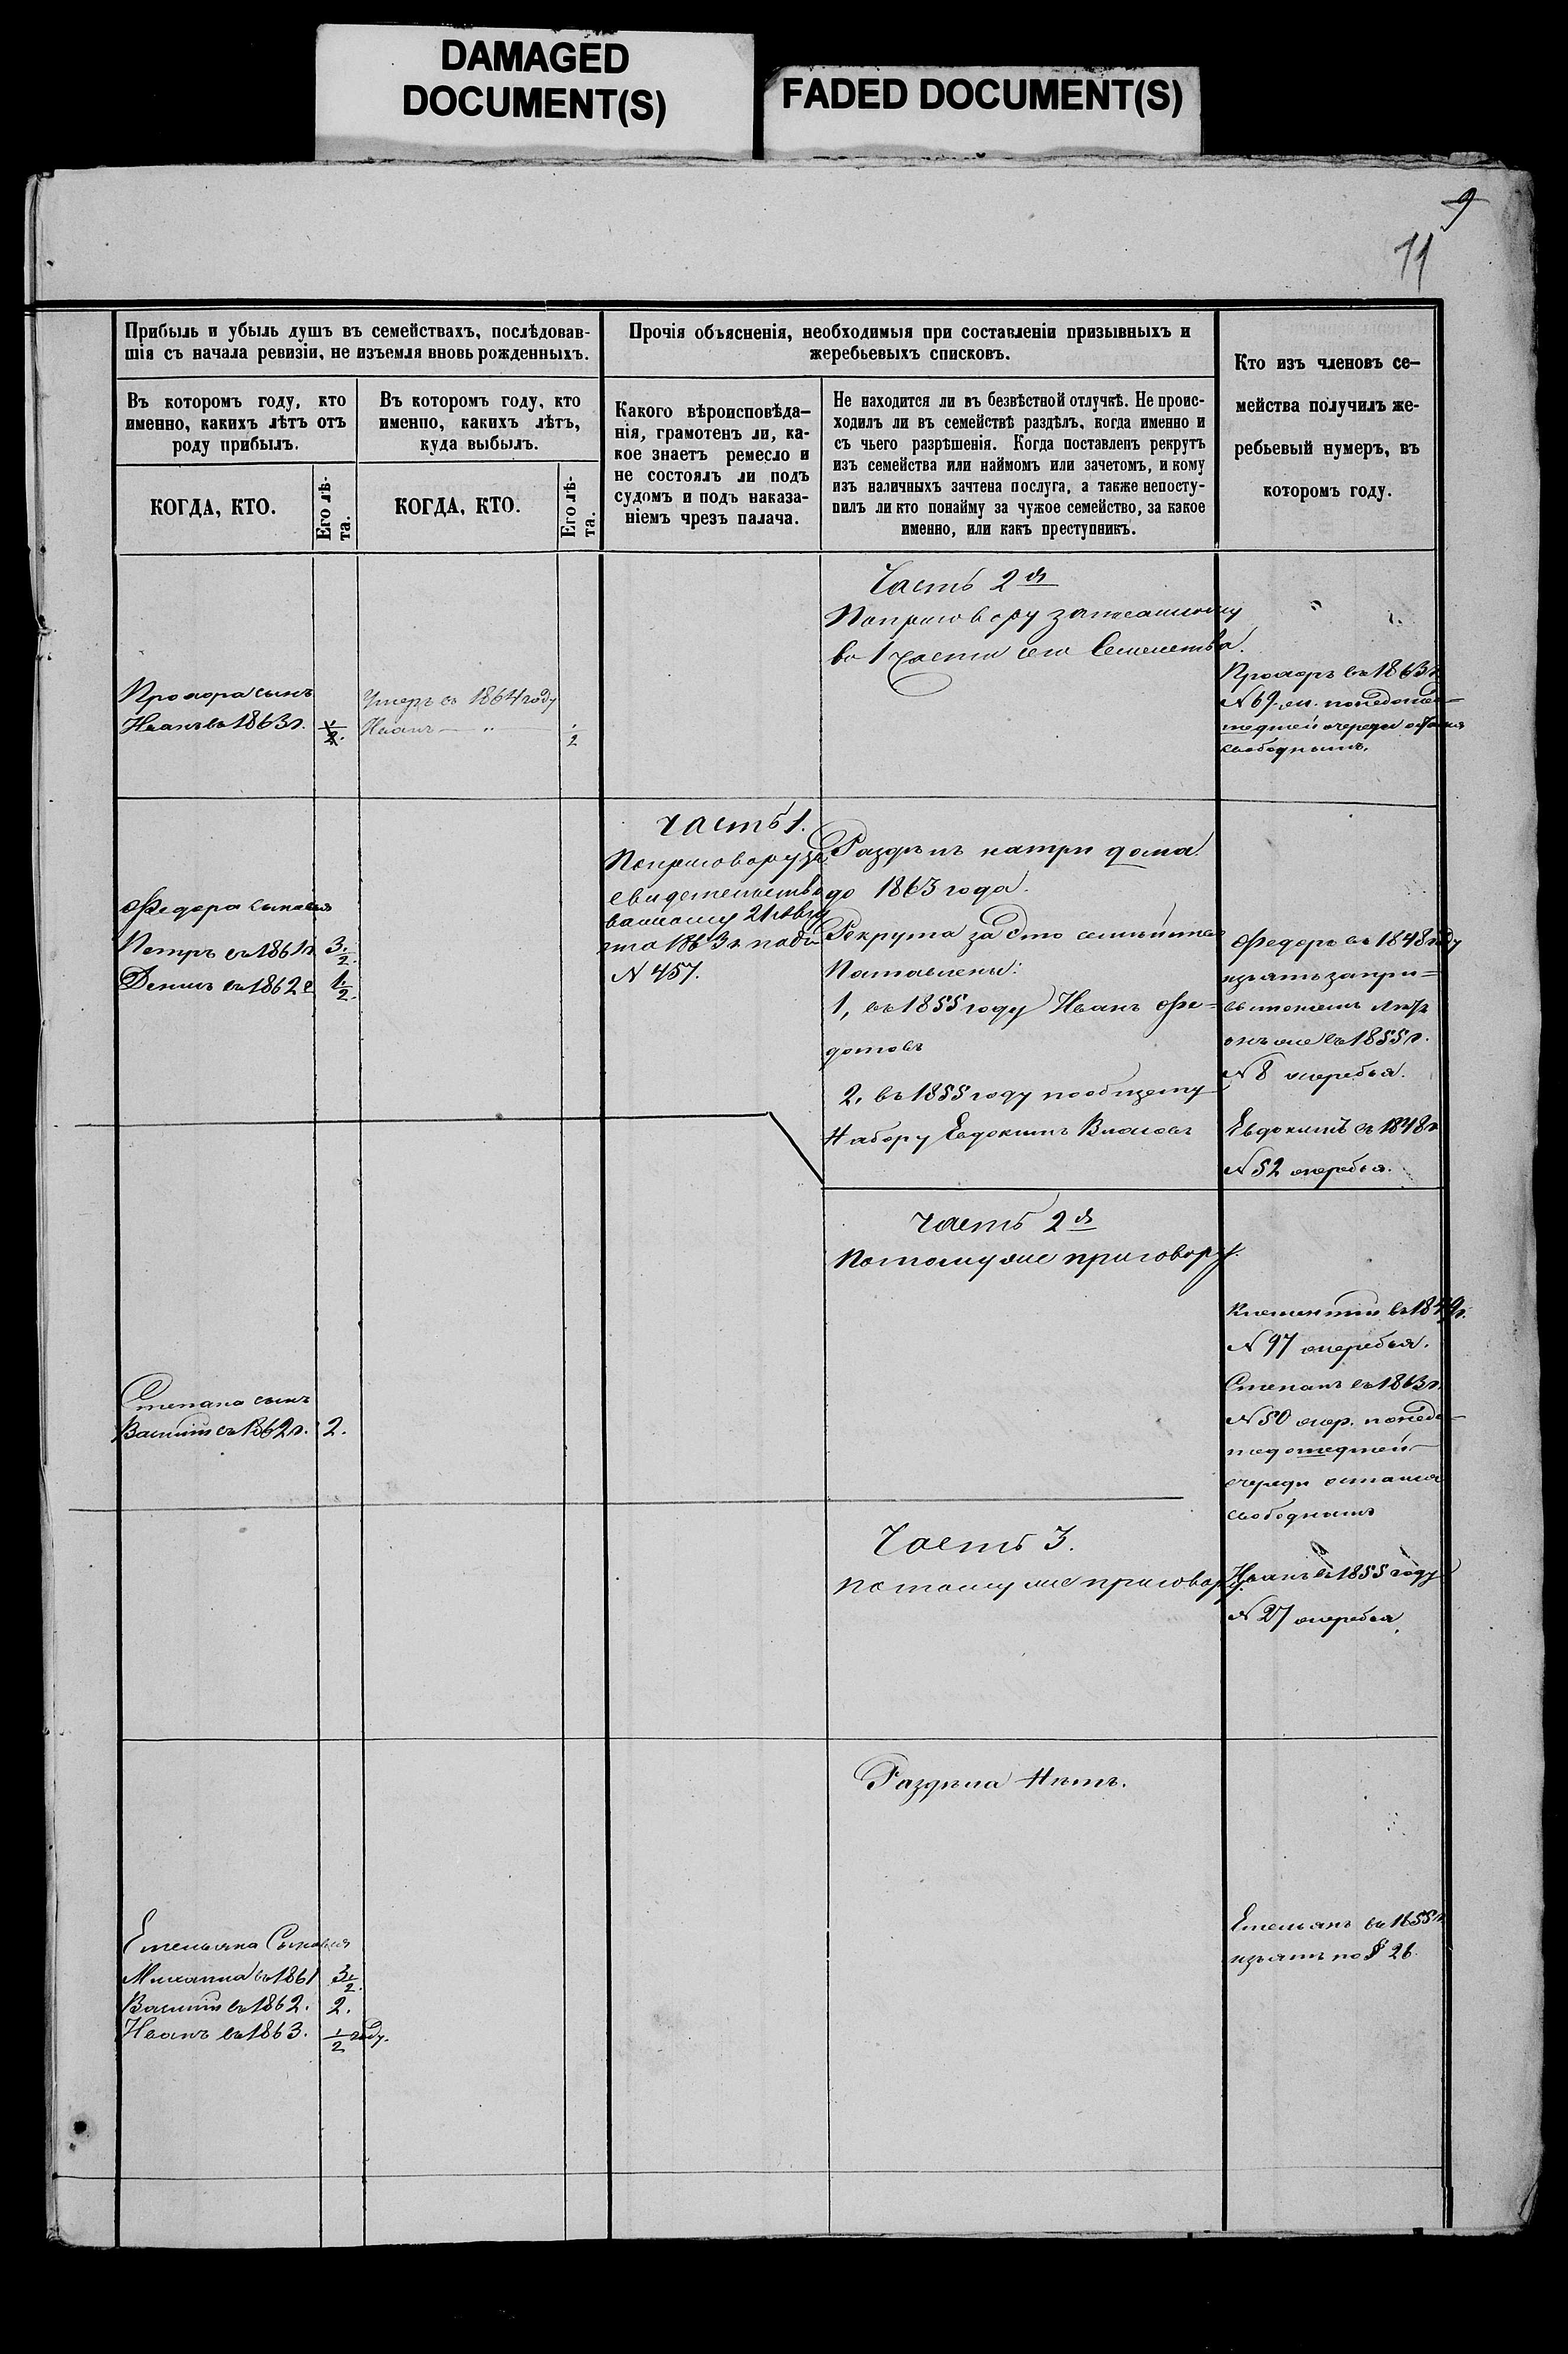 DAMAGED
DOCUMENT(S)
FADED DOCUMENT(S)
9
11
Прибыль и убыль душъ въ семействахъ, послѣдовав-
шія съ начала ревизіи, не изъемля вновь рожденныхъ.
Въ которомъ году, кто
именно, какихъ лѣтъ отъ
роду прибылъ.
КОГДА, КТО.
Его лѣ-
та.
Въ которомъ году, кто
именно, какихъ лѣтъ,
куда выбылъ.
КОГДА, КТО.
Его лѣ-
та.
Прочія объясненія, необходимыя при составленіи призывныхъ и
жеребьевыхъ списковъ.
Какого вѣроисповѣда-
нія, грамотенъ ли, ка-
кое знаетъ ремесло и
не состоялъ ли подъ
судомъ и подъ наказа-
ніемъ чрезъ палача.
Не находится ли въ безвѣстной отлучкѣ. Не проис-
ходилъ ли въ семействѣ раздѣлъ, когда именно и
съ чьего разрѣшенія. Когда поставленъ рекрутъ
изъ семейства или наймомъ или зачетомъ, и кому
изъ наличныхъ зачтена послуга, а также непосту-
пилъ ли кто понайму за чужое семейство, за какое
именно, или какъ преступникъ.
Кто изъ членовъ се-
мейства получилъ же-
ребьевый нумеръ, въ
которомъ году.
Часть 2я
По приговору записанному
въ 1 части сего Семейства.
Прохора сынъ
Иванъ въ 1863 г. 1/2.
Умеръ въ 1864 году
Иванъ — " — 1/2
Прохоръ въ 1863 г.
№ 69
очереди
свободнымъ.
Часть 1.
По приговору за
свидетельство
ванному 21 Авгу
ста 1863 г. подъ
№ 457.
Раздѣлъ на три дома
до 1863 года.
Рекрута за Это семейство
Поставлены:
1, въ 1855 году Иванъ Фе=
дотовъ
2, въ 1855 году пообщему
Набору Евдокимъ Власовъ
Федора сыновья
Петръ въ 1861 г. 3 1/2.
Денисъ въ 1862 г 1 1/2.
Федоръ въ 1848 году
изъятъ
онъ же въ 1855 г.
№ 8 жеребья.
Евдокимъ въ 1848 г.
№ 52 жеребья.
Часть 2я
По тому же приговору.
Степана сынъ
Василій въ 1862 г. 2.
Климентій въ 1849 г.
№ 97 жеребья.
Степанъ въ 1863 г.
№ 50 жер. понедо-
шедшей
очереди остался
свободнымъ
Часть 3.
По тому же приговору.
Иванъ въ 1855 году
№ 27 жеребья.
Раздѣла Нѣтъ.
Емельяна Сыновья
Михаила въ 1861 3 1/2.
Василій въ 1862. 2.
Иванъ въ 1863. 1/2 году.
Емельянъ въ 1855 г.
изъятъ по § 26.